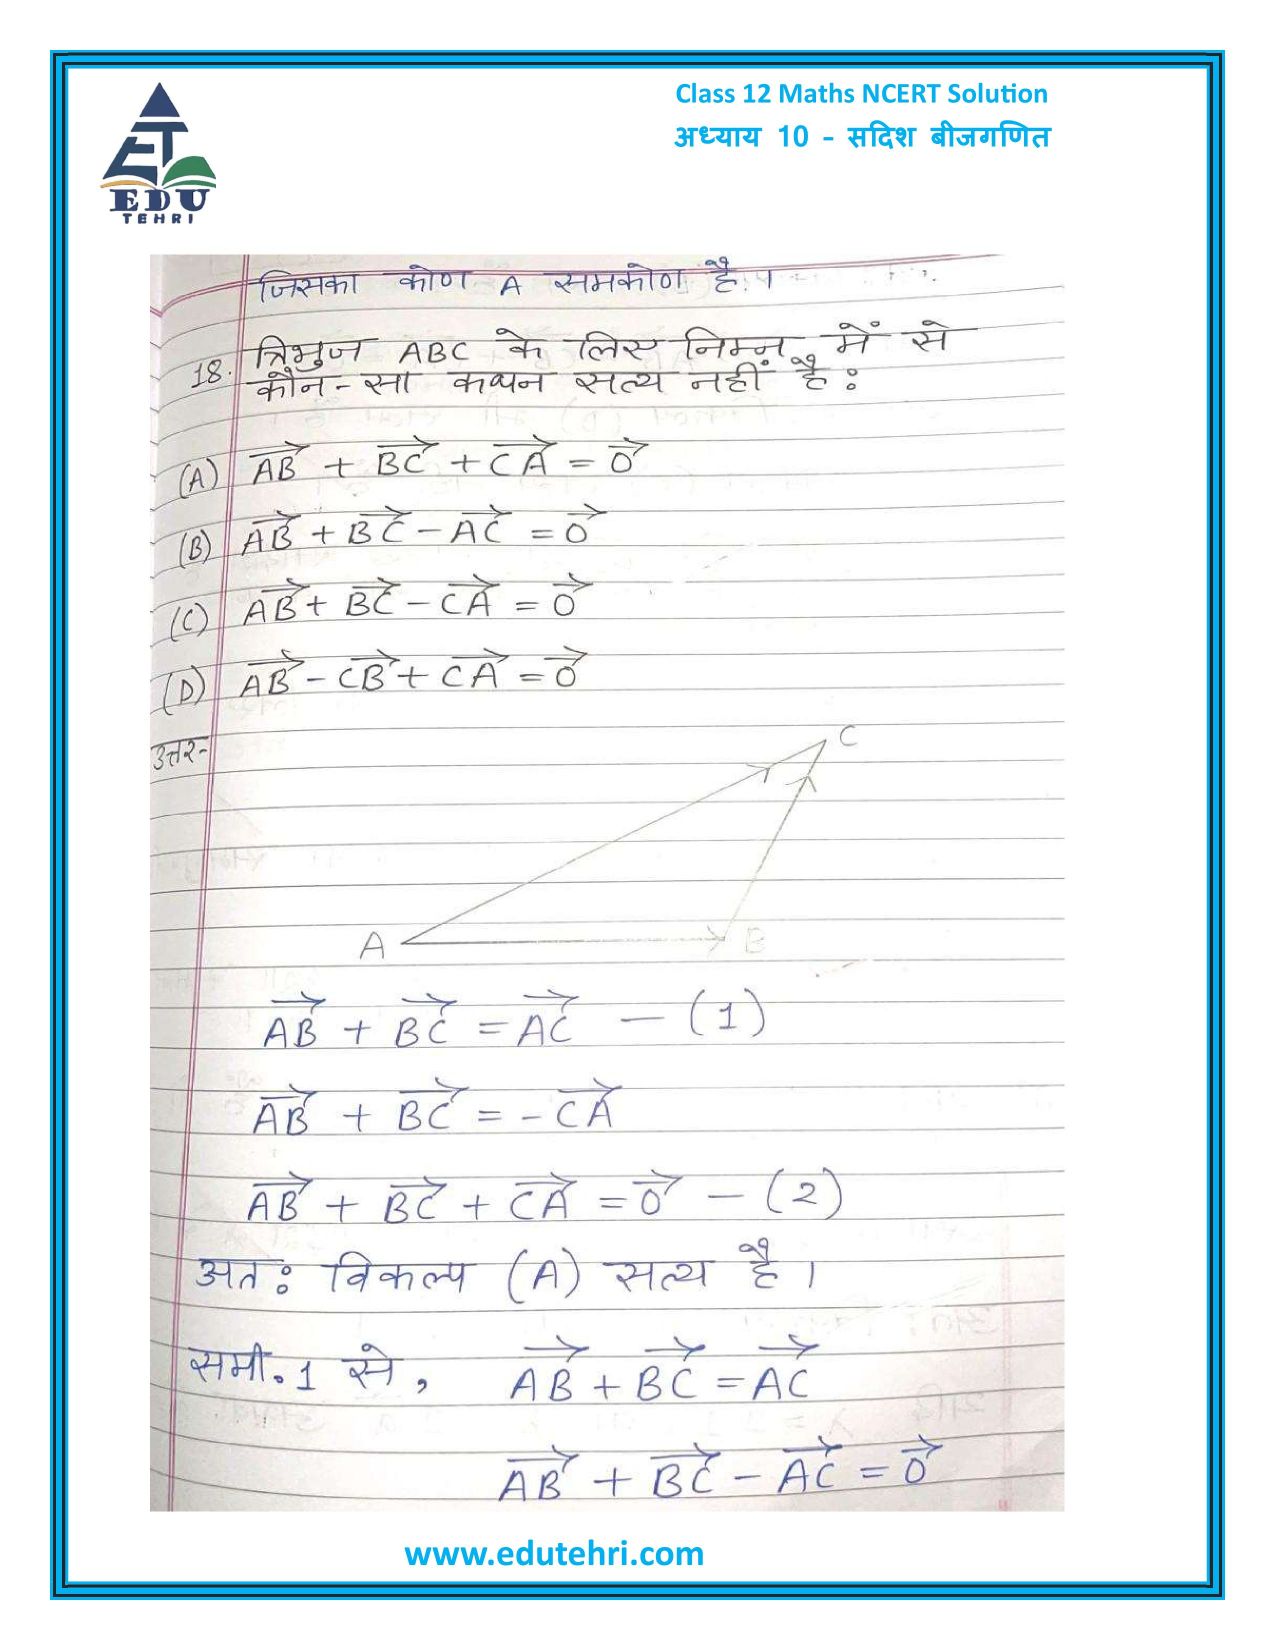 Class 12 Maths NCERT Solution
अध्याय 10 - सदिश बीजगणित
EDU
TEHRI
जिसका कोण A समकोण है।
18. त्रिभुज ABC के लिए निम्न में से
कौन-सा कथन सत्य नहीं है:
(A) $\overrightarrow{AB} + \overrightarrow{BC} + \overrightarrow{CA} = \overrightarrow{0}$
(B) $\overrightarrow{AB} + \overrightarrow{BC} - \overrightarrow{AC} = \overrightarrow{0}$
(C) $\overrightarrow{AB} + \overrightarrow{BC} - \overrightarrow{CA} = \overrightarrow{0}$
(D) $\overrightarrow{AB} - \overrightarrow{CB} + \overrightarrow{CA} = \overrightarrow{0}$
उत्तर-
C
A
B
$\overrightarrow{AB} + \overrightarrow{BC} = \overrightarrow{AC}$ — (1)
$\overrightarrow{AB} + \overrightarrow{BC} = -\overrightarrow{CA}$
$\overrightarrow{AB} + \overrightarrow{BC} + \overrightarrow{CA} = \overrightarrow{0}$ — (2)
अतः विकल्प (A) सत्य है।
समी. 1 से, $\overrightarrow{AB} + \overrightarrow{BC} = \overrightarrow{AC}$
$\overrightarrow{AB} + \overrightarrow{BC} - \overrightarrow{AC} = \overrightarrow{0}$
www.edutehri.com